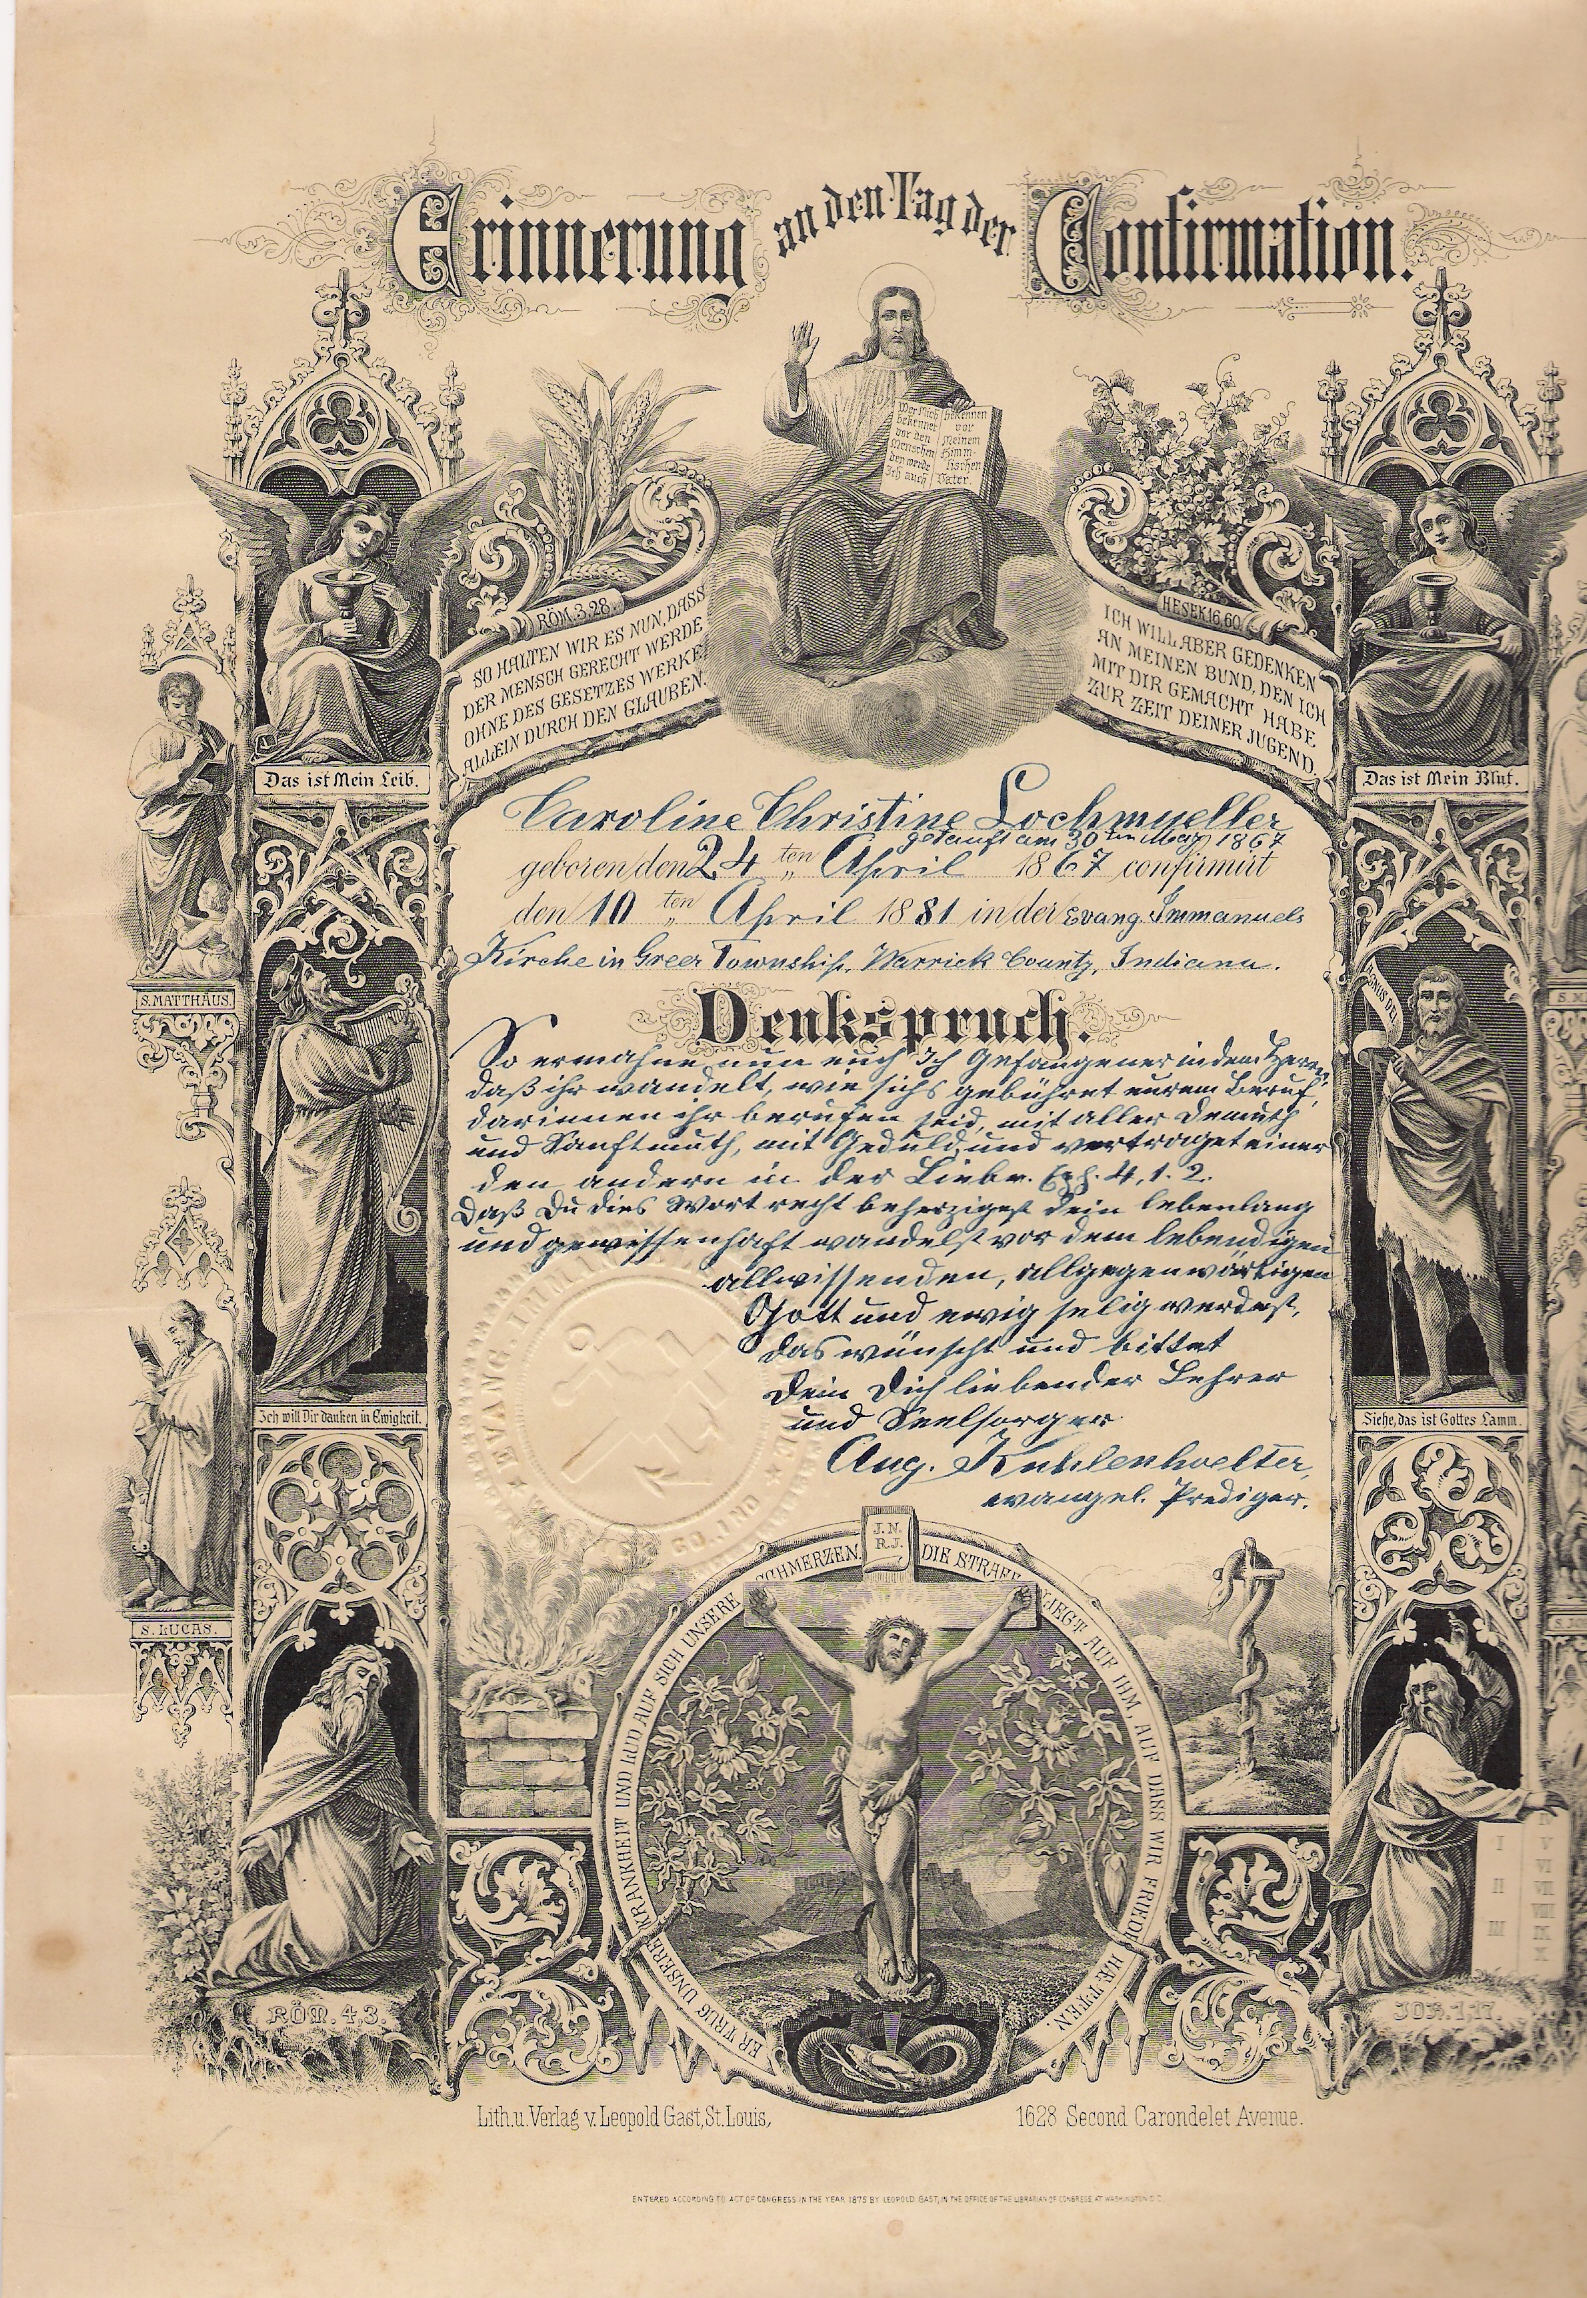 Erinnerung an den Tag der Confirmation.
Wer Mich
bekennet
vor den
Menschen
den werde
Ich auch
bekennen
vor
Meinem
Himm-
lischen
Vater.
RÖM. 3,28.
SO HALTEN WIR ES NUN, DASS
DER MENSCH GERECHT WERDE
OHNE DES GESETZES WERKE,
ALLEIN DURCH DEN GLAUBEN.
HESEK 16,60
ICH WILL ABER GEDENKEN
AN MEINEN BUND, DEN ICH
MIT DIR GEMACHT HABE
ZUR ZEIT DEINER JUGEND.
Das ist Mein Leib.
Das ist Mein Blut.
Caroline Christine Lochmueller
getauft am 30ten May 1867
geboren den 24ten April 1867 confirmirt
den 10ten April 1881 in der Evang. Immanuels
Kirche in Greer Township, Warrick County, Indiana.
S. MATTHÄUS.
S. M
AGNUS DEI
Denkspruch.
So ermahne nun euch Ich Gefangener in dem Herrn,
daß ihr wandelt, wie sichs gebühret eurem Beruf,
darinnen ihr berufen seid, mit aller Demuth
und Sanftmuth, mit Geduld, und vertraget einer
den andern in der Liebe. Eph. 4, 1. 2.
Daß Du dies Wort recht beherzigest Dein lebenlang
und gewissenhaft wandelst vor dem lebendigen
allwissenden, allgegenwärtigen
Gott und ewig selig werdest,
das wünscht und bittet
Dein Dich liebender Lehrer
und Seelsorger
Aug. Kuhlenhoelter,
evangel. Prediger.
Ich will Dir danken in Ewigkeit.
Siehe, das ist Gottes Lamm.
EVANG.
S. LUCAS.
J. N.
R. J.
ER TRUG UNSERE KRANKHEIT UND LUD AUF SICH UNSERE SCHMERZEN. DIE STRAFE LIEGT AUF IHM, AUF DASS WIR FRIEDE HÆTTEN.
I
II
III
RÖM. 4,3.
JOH. 1,17.
Lith. u. Verlag v. Leopold Gast, St. Louis,
1628 Second Carondelet Avenue.
ENTERED ACCORDING TO ACT OF CONGRESS IN THE YEAR 1875 BY LEOPOLD GAST, IN THE OFFICE OF THE LIBRARIAN OF CONGRESS AT WASHINGTON D.C.